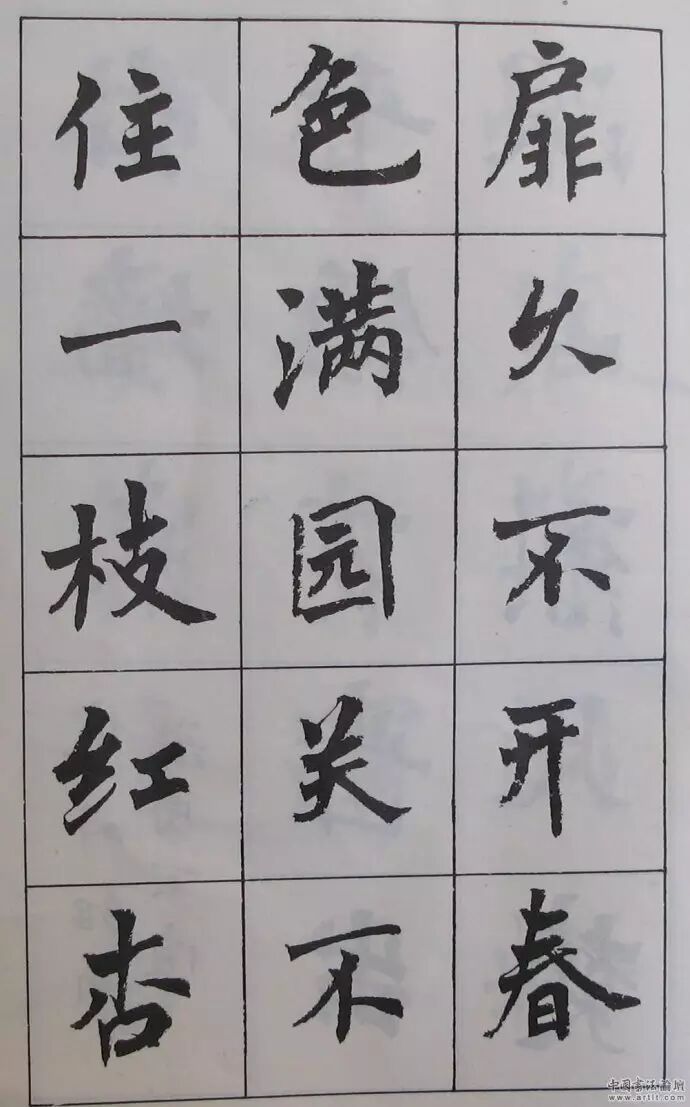 扉久不开春
色满园关不
住一枝红杏
中国书法论坛
www.artlt.com